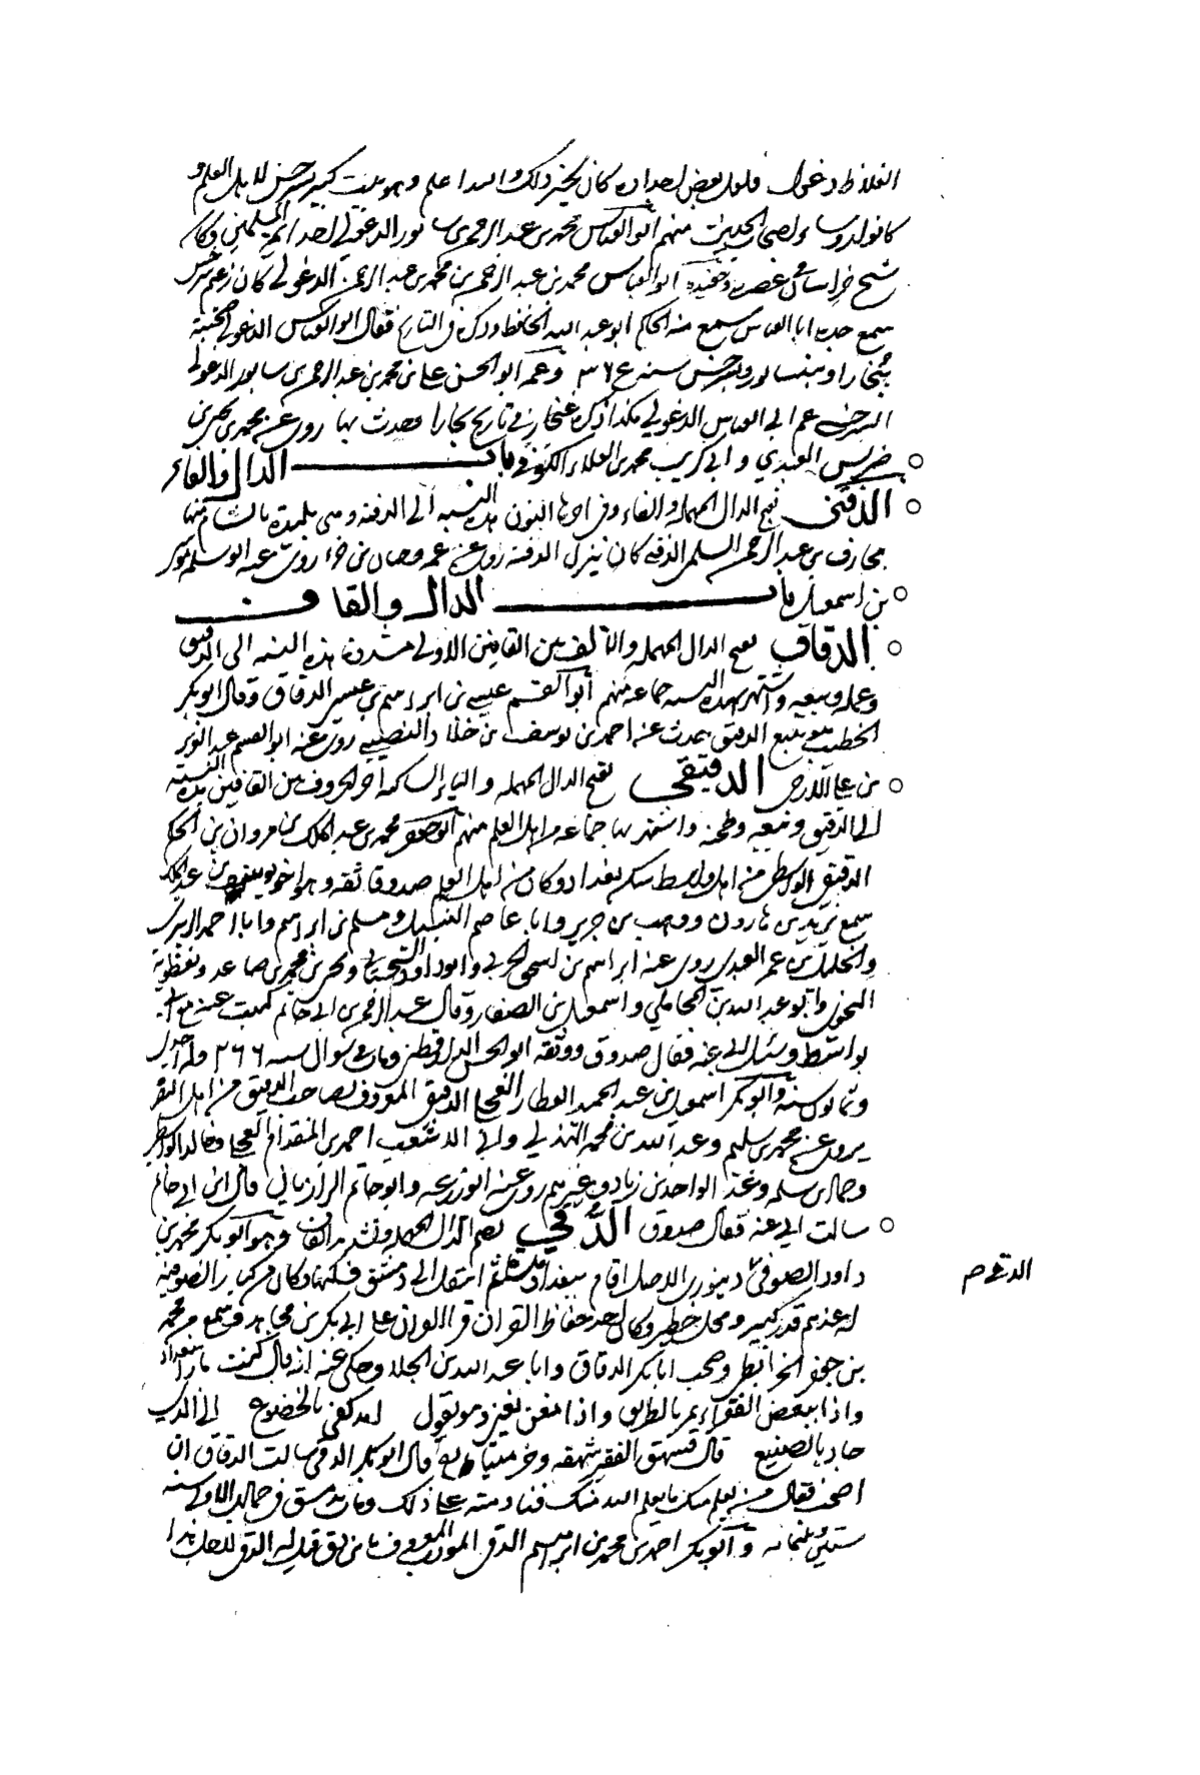 الغلاظ دغول فلعل بعض اجداده كان يخبز ذلك والله اعلم وهو بيت كبير بسرخس لاهل العلم و
كانوا رؤسا واصحاب الحديث منهم ابو العباس محمد بن عبد الرحمن بن سابور الدغولي احد ائمة المسلمين وكان
شيخ خراسان في عصره وحفيده ابو العباس محمد بن عبد الرحمن بن محمد بن عبد الرحمن الدغولي كان زعيم سرخس
سمع جده ابا العباس سمع منه الحاكم ابو عبد الله الحافظ وذكره في التاريخ فقال ابو العباس الدغولي صحبته
ببخارا وبنيسابور وبسرخس سنة وعمه ابو الحسن علي بن محمد بن عبد الرحمن بن سابور الدغولي
السرخسي عم ابي العباس الدغولي هكذا ذكره غنجار في تاريخ بخارا وحدث بها روى عن محمد بن
ضريس العبدي وابي كريب محمد بن العلاء الكوفي باب الدال والفاء
الدفني بفتح الدال المهملة والفاء وفي اخرها النون هذه النسبة الى الدفنة وهي بليدة بالشام منها
مخارق بن عبد الرحمن السلمي الدفني كان ينزل الدفنة روى عن عمه حبان بن جزء روى عنه ابو سلمة موسى
بن اسمعيل باب الدال والقاف
الدقاق بفتح الدال المهملة والالف بين القافين الاولى مشددة هذه النسبة الى الدقيق
وعمله وبيعه واشتهر بهذه النسبة جماعة منهم ابو القسم عيسى بن ابراهيم بن عيسى الدقاق وقال ابو بكر
الخطيب هو يبيع الدقيق حدث عن احمد بن يوسف بن خلاد النصيبي روى عنه ابو القسم عبد العزيز
بن علي الازجي الدقيقي بفتح الدال المهملة والياء الساكنة اخر الحروف بين القافين هذه النسبة
الى الدقيق وبيعه وطحنه واشتهر بها جماعة من اهل العلم منهم ابو جعفر محمد بن عبد الملك بن مروان بن الحكم
الدقيقي الواسطي من اهل واسط سكن بغداد وكان من اهل العلم صدوقا ثقة وهو اخو يوسف بن عبد الملك
سمع يزيد بن هارون ووهب بن جرير وابا عاصم النبيل ومسلم بن ابراهيم وابا احمد الزبيري
والخليل بن عمر العبدي روى عنه ابراهيم بن اسحق الحربي وابو داود السجستاني ويحيى بن محمد بن صاعد ونفطويه
النحوي وابو عبد الله بن المحاملي واسمعيل بن الصفار وقال عبد الرحمن بن ابي حاتم كتبت عنه مع ابي
بواسط وسئل ابي عنه فقال صدوق ووثقه ابو الحسن الدارقطني ومات في شوال سنة ٢٦٦ وله احدى
وثمانون سنة وابو بكر اسمعيل بن عبد الحميد العطار العجلي الدقيقي المعروف بصاحب الدقيق من اهل البصرة
يروي عن محمد بن سليم وعبد الله بن محمد الهذلي وابي الاشعث احمد بن المقدام العجلي وخالد الواسطي
وحماد بن سلمة وعبد الواحد بن زياد وغيرهم روى عنه ابو زرعة وابو حاتم الرازيان قال ابن ابي حاتم
سالت ابي عنه فقال صدوق الدقي بضم الدال المهملة وتشديد القاف وهو ابو بكر محمد بن
داود الصوفي دينوري الاصل اقام ببغداد مدة ثم انتقل الى دمشق فسكنها وكان من كبار الصوفية
له عندهم قدر كبير ومحل خطير وكان احد حفاظ القران قرا القران على ابي بكر بن مجاهد وسمع من محمد
بن جعفر الخرائطي وصحب ابا بكر الدقاق وابا عبد الله بن الجلاء وحكي عنه انه قال كنت مارا ببغداد
واذا ببعض الفقراء يمر بالطريق واذا مغن يغني وهو يقول امد كفي بالخضوع الى الذي
جاد بالصنيع قال فشهق الفقير شهقة وخر ميتا قال ابو بكر الدقي سالت الدقاق ان
اصحب فقال من يعلم منك ما يعلم الله منك فنادمته على ذلك ومات بدمشق في جمادى الاولى سنة
ستين وثلثمائة وابو بكر احمد بن محمد بن ابراهيم الدقي المؤدب المعروف بابن دق قيل له الدقي لان هذا
الدقي صح